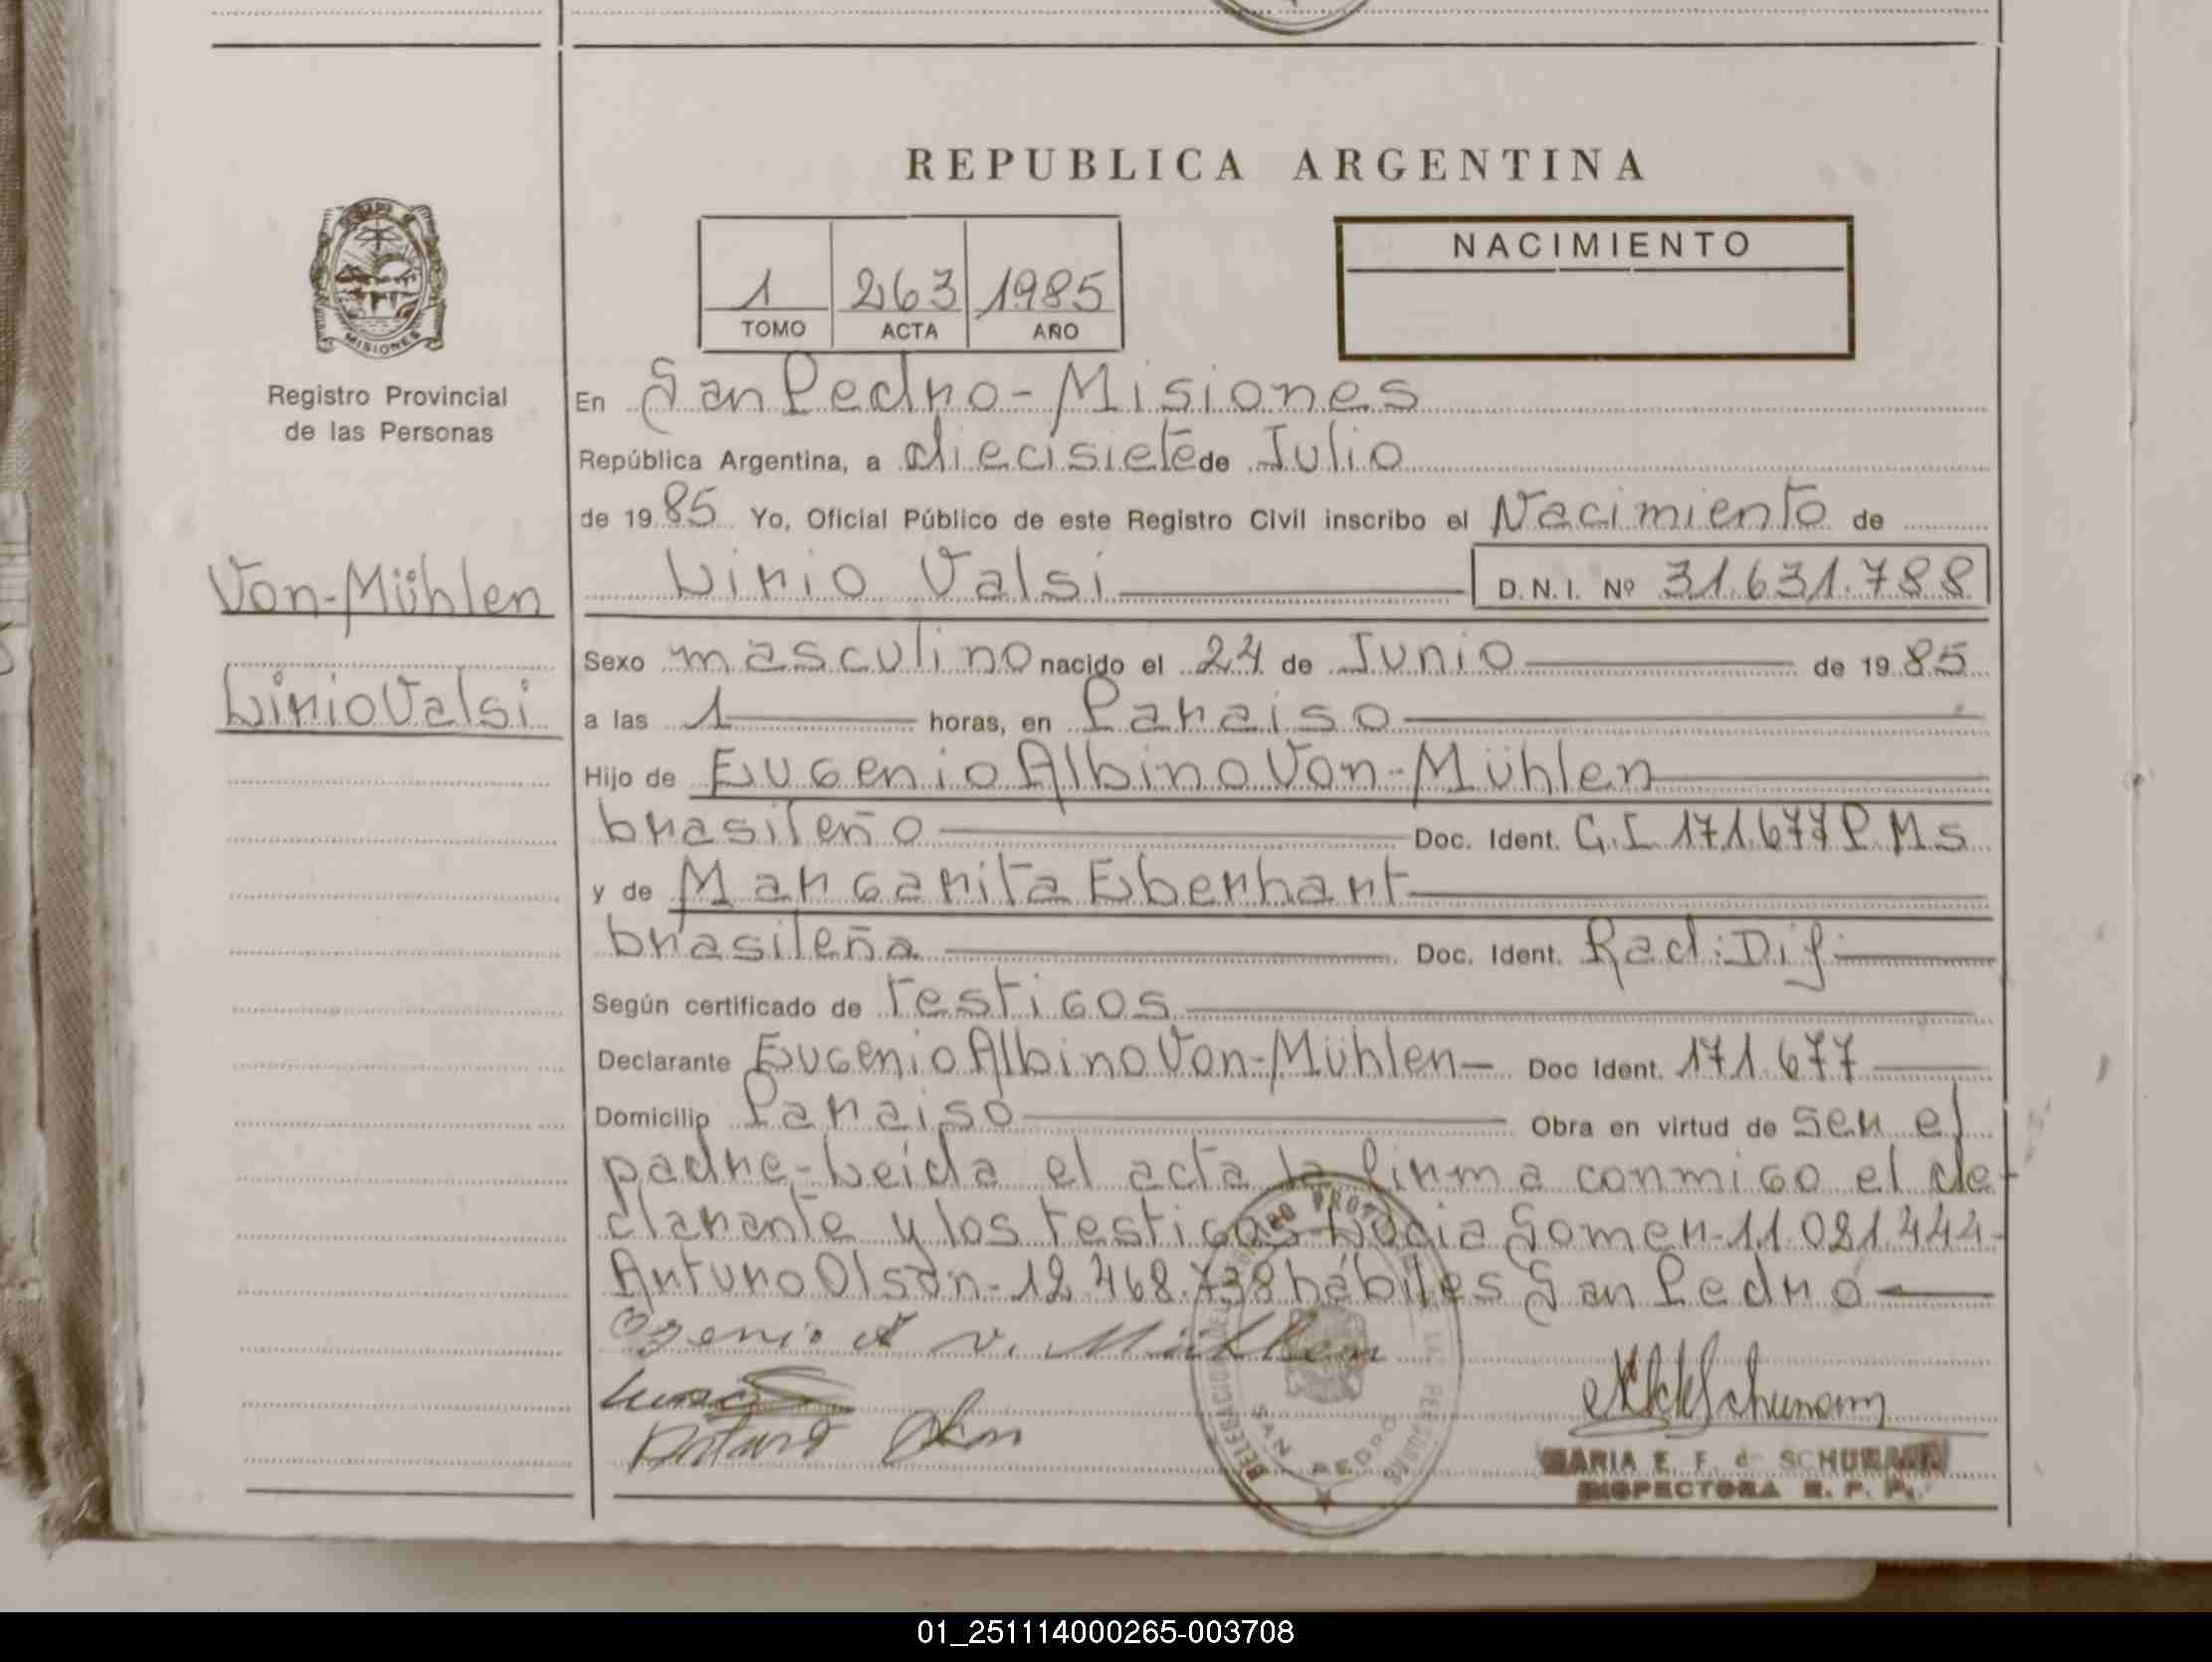 REPUBLICA ARGENTINA
1 263 1985
TOMO ACTA AÑO
NACIMIENTO
MISIONES
Registro Provincial
de las Personas
En San Pedro - Misiones
República Argentina, a diecisiete de Julio
de 1985 Yo, Oficial Público de este Registro Civil inscribo el Nacimiento de
Von-Mühlen
Lirio Valsi
Lirio Valsi D.N.I. Nº 31.631.788
Sexo masculino nacido el 24 de Junio de 1985
a las 1 horas, en Paraiso
Hijo de Eugenio Albino Von-Mühlen
brasileño Doc. Ident. C.I 171.677 P.M s
y de Margarita Eberhart
brasileña Doc. Ident. Rad: Dif:
Según certificado de testigos
Declarante Eugenio Albino Von-Mühlen - Doc Ident. 171.677
Domicilio Paraiso Obra en virtud de ser el
padre-Leída el acta la firma conmigo el de-
clarante y los testigos Lucia Gomer-11.081.444-
Arturo Olson-12.468.738 hábiles San Pedro
A v. Mühlen
Arturo Olson
SAN PEDRO
MARIA E. F. de SCHUMANN
INSPECTORA R. P. P.
01_251114000265-003708